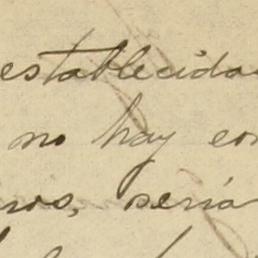 establecida
no hay en
nos, sería